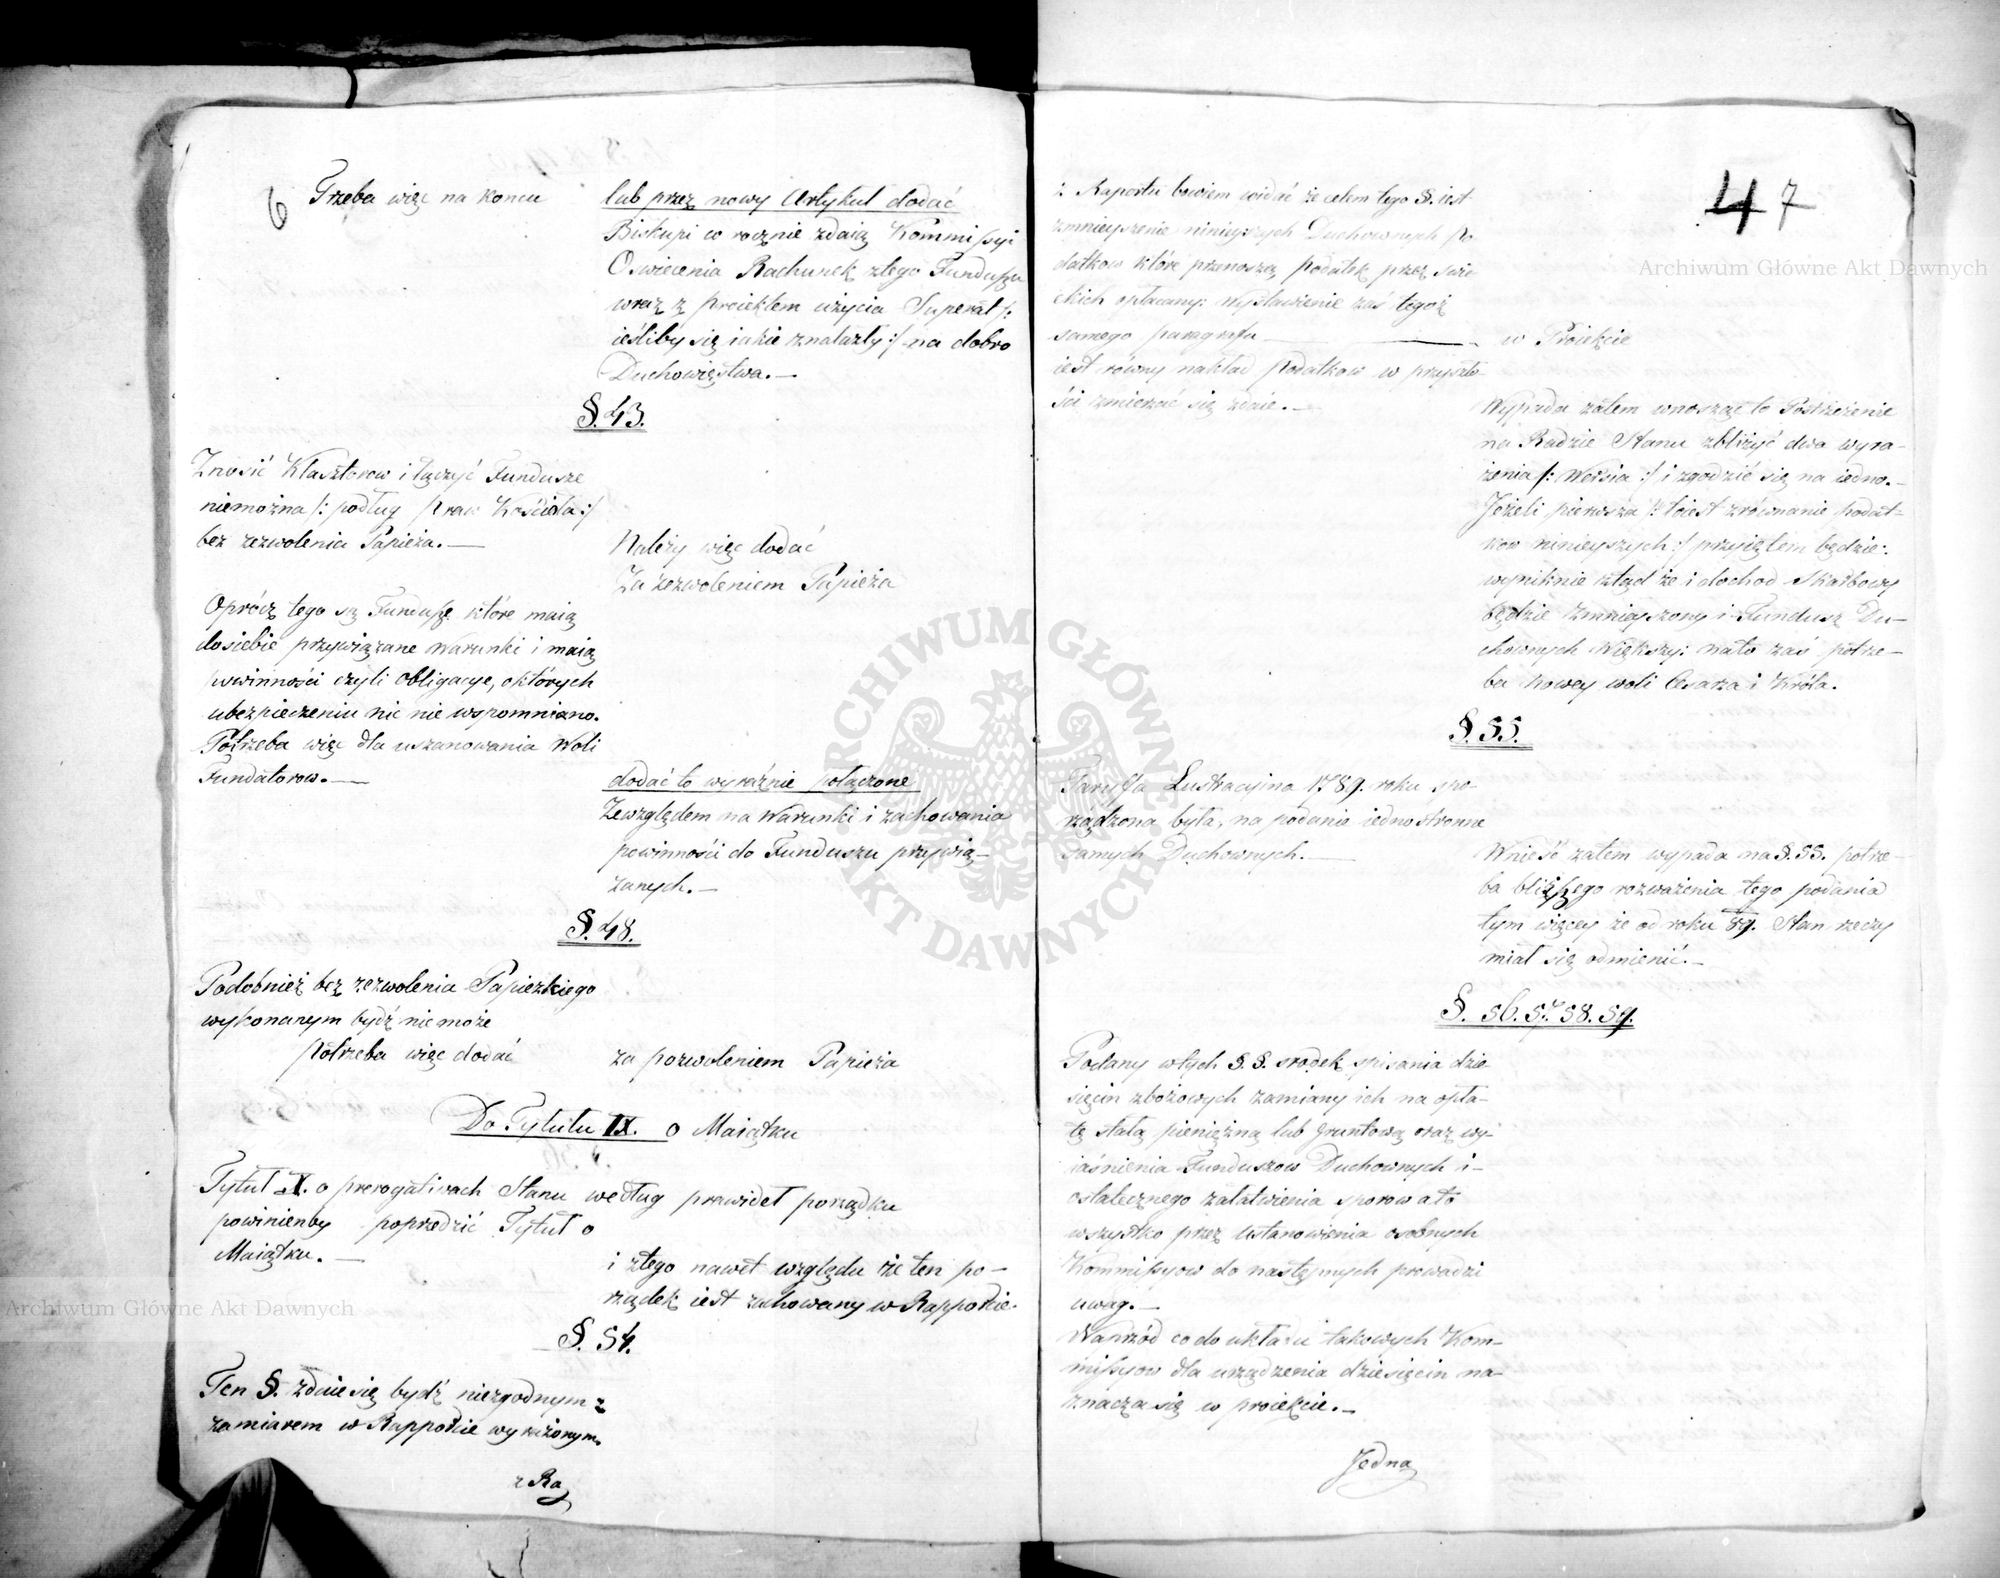 6
Trzeba więc na końcu
lub przez nowy Artykuł dodać
Biskupi co rocznie zdaią Kommissyi
Oswiecenia Rachunek ztego Funduszu
wraz z proiektem użycia Superat /:
ieśliby się iakie znalazły :/ na dobro
Duchowięstwa. —
§. 43.
Znosić Klasztorow i łączyć Fundusze
niemożna /: podług Praw Kościoła :/
bez zezwolenia Papieża. —
Należy więc dodać
Za zezwoleniem Papieża
Oprócz tego są Fundusze które maią
do siebie przywiązane warunki i maią
powinności czyli obligacye, o których
ubezpieczeniu nic nie wspomniano.
Potrzeba więc dla uszanowania Woli
Fundatorow. —
dodać to wyraźnie połączone
Zewzględem na Warunki i zachowania
powinności do Funduszu przywią-
zanych. —
§. 48.
Podobnież bez zezwolenia Papiezkiego
wykonanym bydź nie może
potrzeba więc dodać
za pozwoleniem Papieża
Do Tytułu IX. o Maiątku
Tytuł X. o prerogativach Stanu według prawideł porządku
powinienby poprzedzić Tytuł o
Maiątku. —
i ztego nawet względu że ten po-
rządek iest zachowany w Rapporcie.
§. 54.
Ten §. zdaie się bydź niezgodnym z
zamiarem w Rapporcie wyrażonym
z Ra
47
z Raportu bowiem widać że celem tego §. iest
zmnieyszenie ninieyszych Duchownych Po
datkow które przenoszą podatek przez świe
ckich opłacany: wysławienie zaś tegoż
samego paragrafu —
w Proiekcie
iest równy nakład Podatkow w przyszło
ści zmierzać się zdaie. —
Wypada zatem wnosząc to Postrzeżenie
na Radzie Stanu zbliżyć dwa wyra-
żenia /: Wersia :/ i zgodzić się na iedno. -
Jeżeli pierwsza /: toiest zrównanie podat-
kow ninieyszych :/ przyiętem będzie:
wyniknie ztąd że i dochod Skarbowy
będzie zmnieyszony i Fundusz Du-
chownych większy: na to zaś potrze-
ba nowey woli Cesarza i Króla.
§. 55.
Taryffa Lustracyina 1789. roku spo-
rządzona była, na podanie iednostronne
samych Duchownych. —
Wnieść zatem wypada na §. 55. potrze-
ba bliższego rozważenia tego podania
tym więcey że od roku 89. Stan rzeczy
miał się odmienić. —
§. 56. 57. 58. 59.
Podany w tych §. §. srodek spisania dzie-
sięcin zbożowych zamiany ich na opła-
tę stałą pieniężną lub gruntową oraz wy-
iaśnienia Funduszow Duchownych i -
ostatecznego załatwienia sporow a to
wszystko przez ustanowienia osobnych
Kommissyow do następnych prowadzi
uwag. —
Naprzód co do układu takowych Kom-
missyow dla urządzenia dziesięcin na-
znacza się w proiekcie. —
Jedna
Archiwum Główne Akt Dawnych
Archiwum Główne Akt Dawnych
ARCHIWUM GŁÓWNE
AKT DAWNYCH